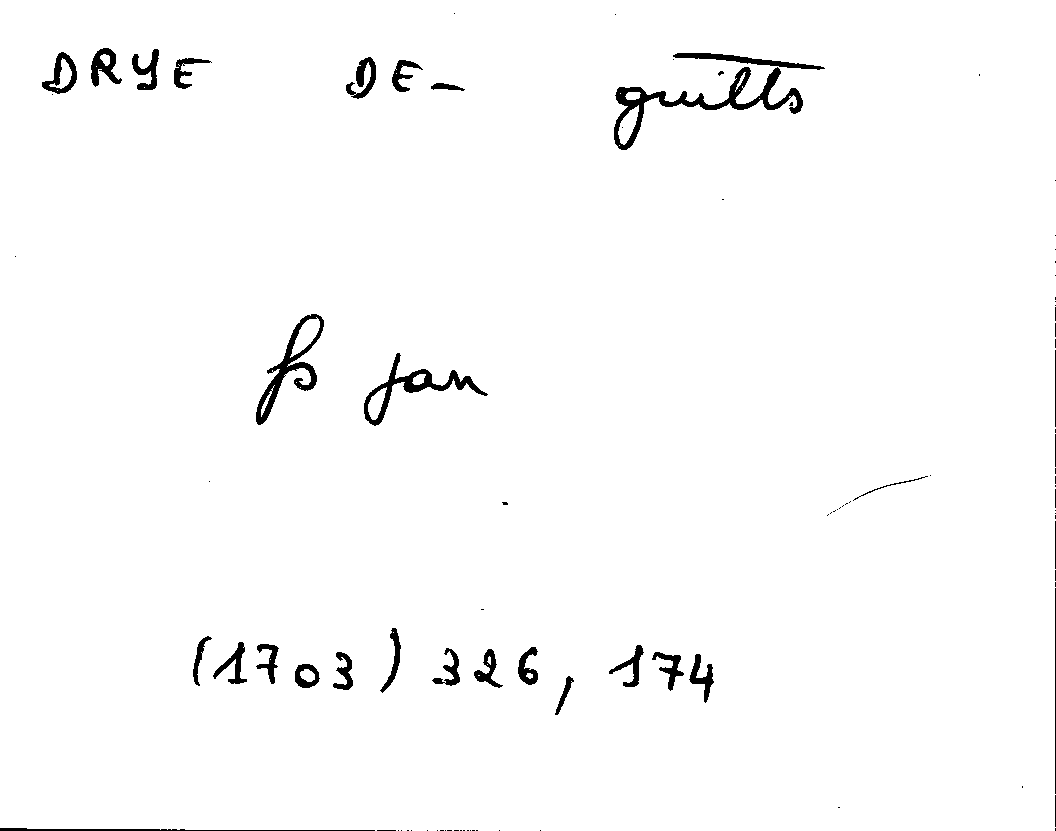 DRYE DE- guills
fs jan
(1703) 326, 174